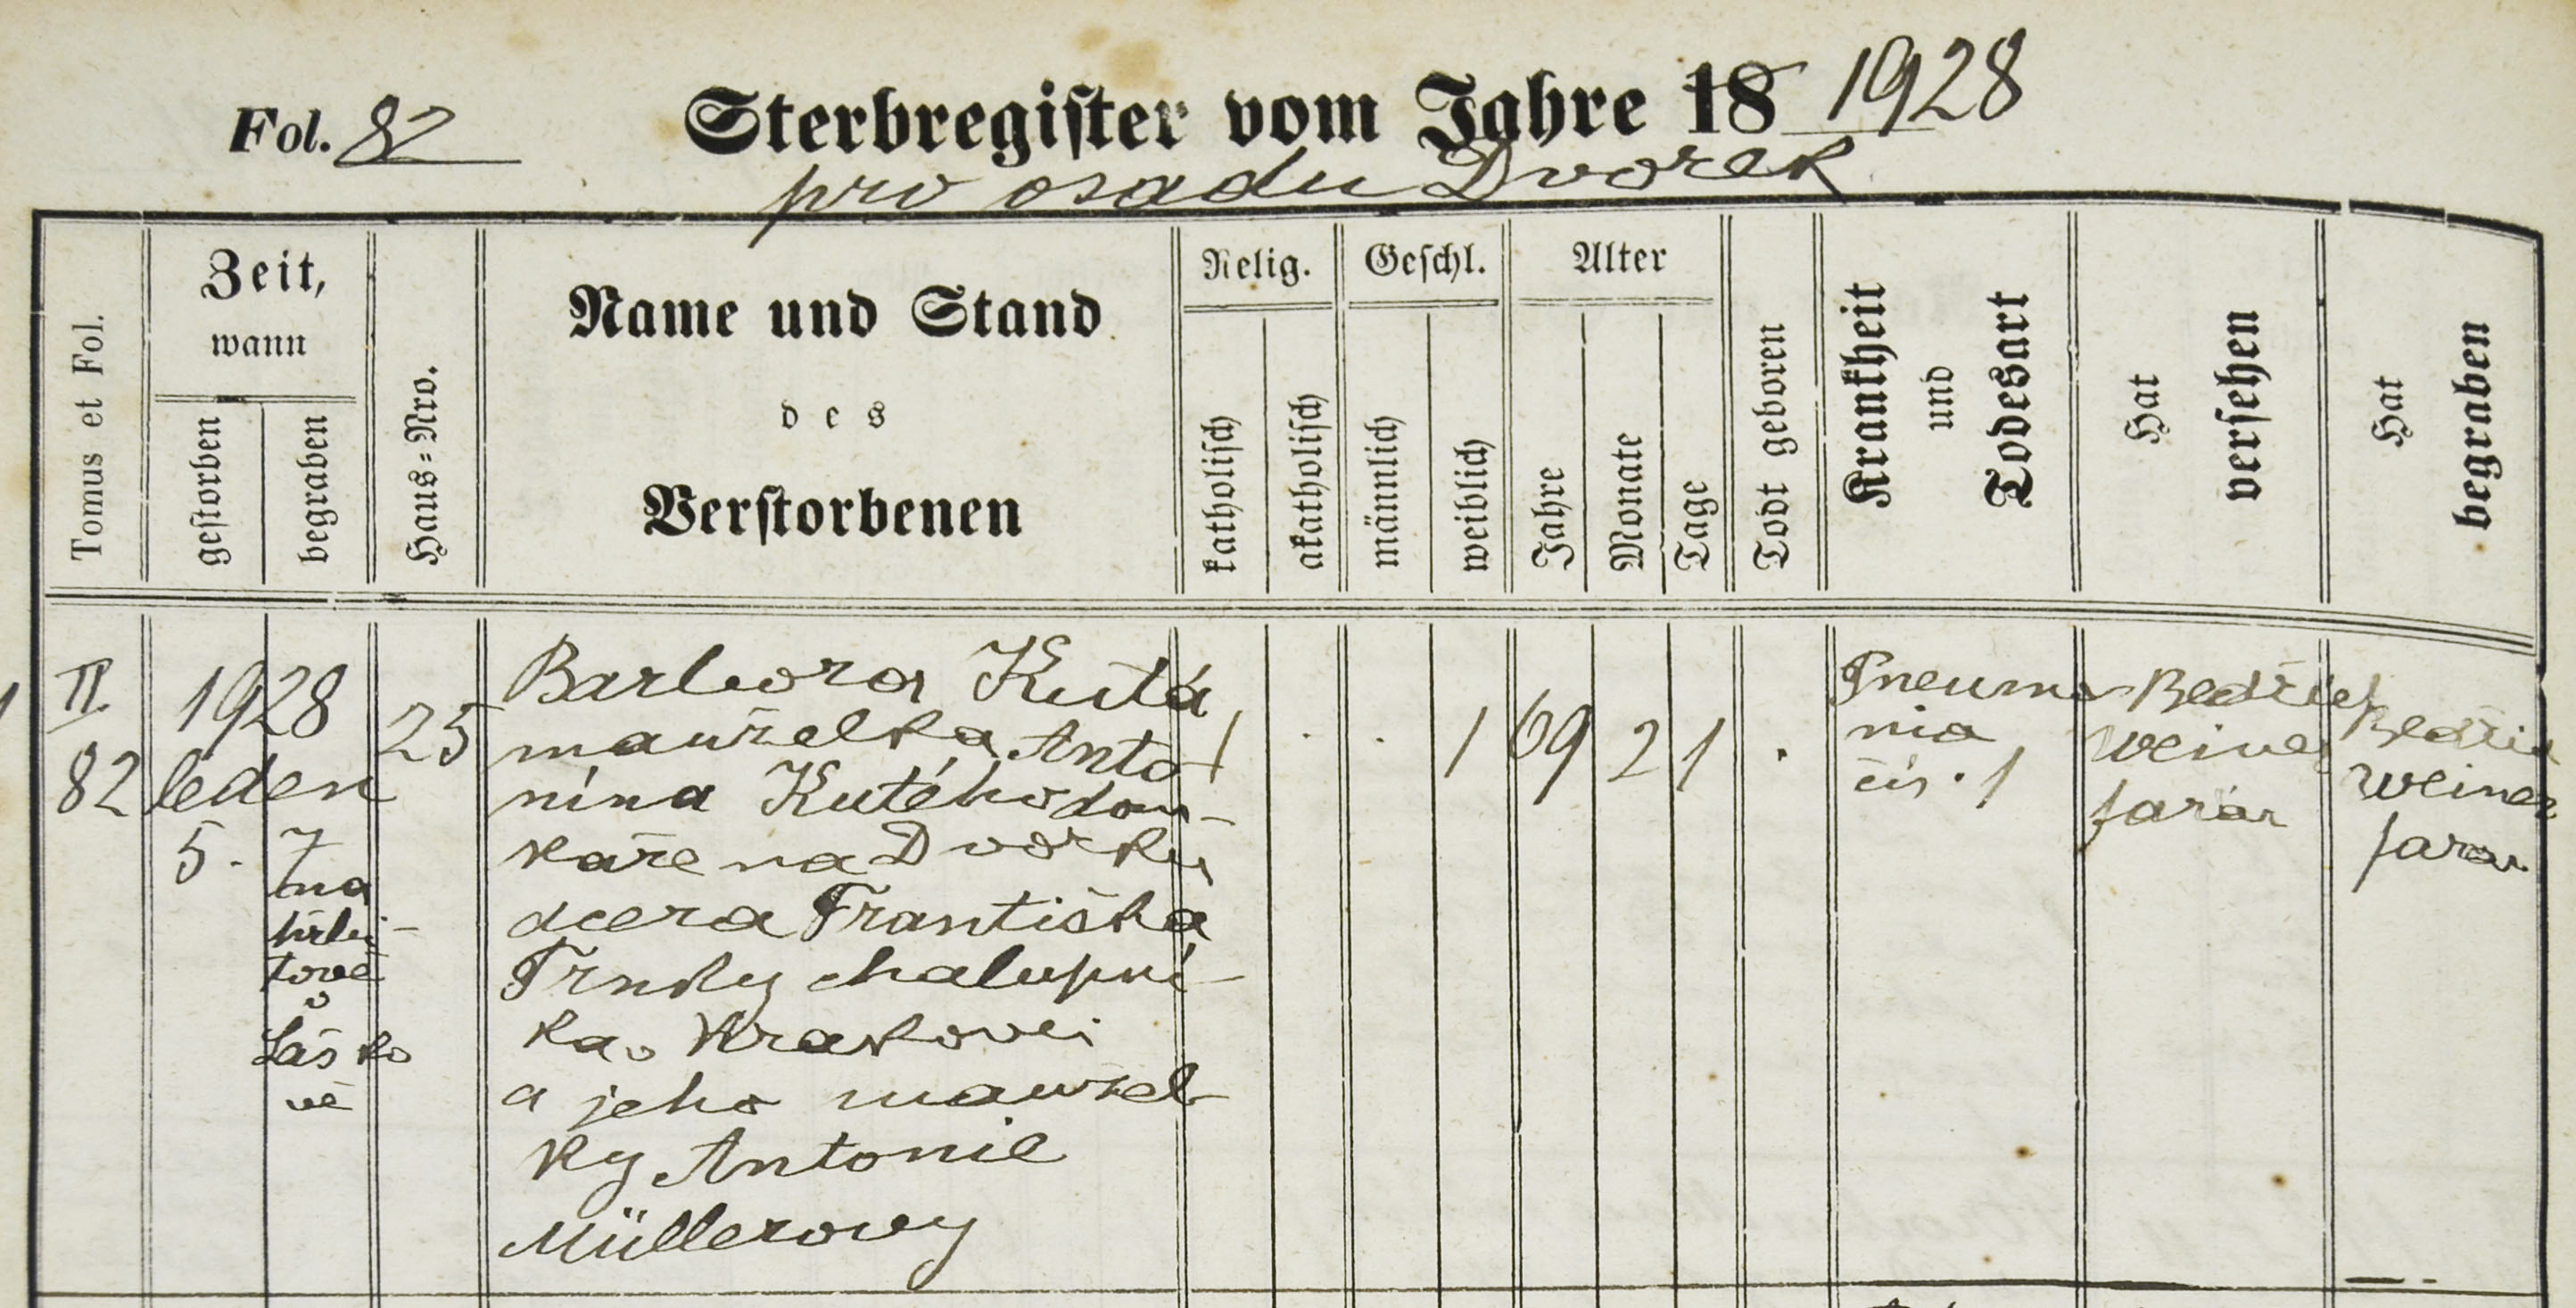 Fol. 82 Sterbregister vom Jahre 18 1928
pro osadu Dvorek
Tomus et Fol.
Zeit,
wann
gestorben
begraben
Haus-Nro.
Name und Stand
des
Verstorbenen
Relig.
katholisch
akatholisch
Geschl.
männlich
weiblich
Alter
Jahre
Monate
Tage
Todt geboren
Krankheit
und
Todesart
Hat
versehen
Hat
begraben
1
II.
82
1928
leden
5.
7
na
hřbi-
tově
v
Lásko
vě
25
Barbora Kutá
manželka Anto-
nína Kutého dom-
káře na Dvorku
dcera Františka
Trnky chalupní-
ka v Krakovci
a jeho manžel-
ky Antonie
Müllerovy
1 . . 1 69 2 1 .
Pneumo-
nia
čís. 1
Bedřich
Weiner
farář
Bedřich
Weiner
farář